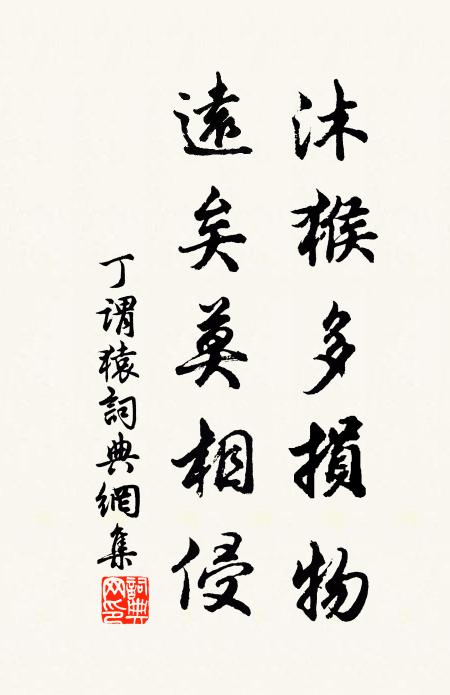 沐猴多損物
遠矣莫相侵
丁謂猿詞典網集
詞典網印